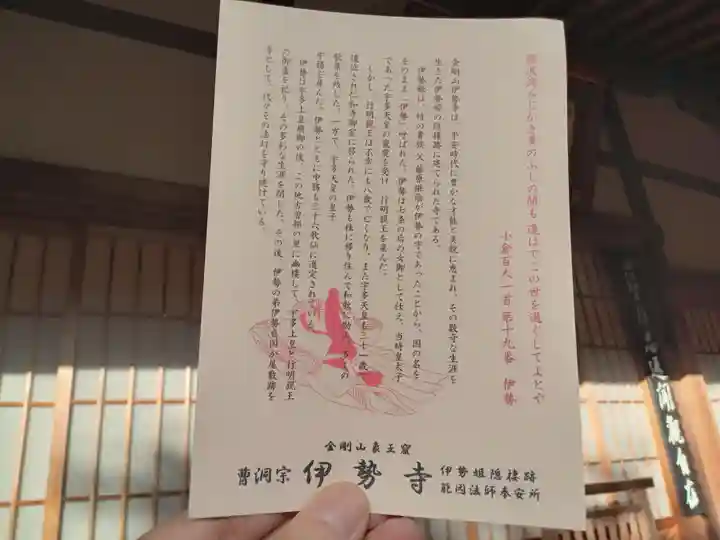 難波潟みじかき葦のふしの間も 逢はでこの世を過ぐしてよとや
小倉百人一首 第十九番 伊勢
金剛山伊勢寺は、平安時代に豊かな才能と美貌に恵まれ、その数奇な生涯を
生きた伊勢姫の旧棲跡に建てられた寺である。
伊勢姫は、時の貴族 父 藤原継蔭が伊勢の守であったことから、国の名を
そのまま「伊勢」呼ばれた。伊勢は七条の后の女御として仕え、当時皇太子
であった宇多天皇の寵愛を受け 行明親王を産んだ。
しかし、行明親王は不幸にも八歳で亡くなり、また宇多天皇も三十一歳で
仁和御室に移られた。伊勢も桂に移り住んで和歌に
歌集を残した。一方で、宇多天皇の皇子
中務を産んだ。伊勢とともに中務も三十六歌仙に選定されている。
伊勢は宇多上皇崩御の後、この地古曽部の里に幽棲して、宇多上皇と行明親王
の御霊を祀り、その多彩な生涯を閉じた。その後、伊勢の弟伊勢自園が屋敷跡を
寺として、代々その法灯を守り続けている。
金剛山象王窟
曹洞宗 伊勢寺
伊勢姫隠棲跡
能因法師奉安所